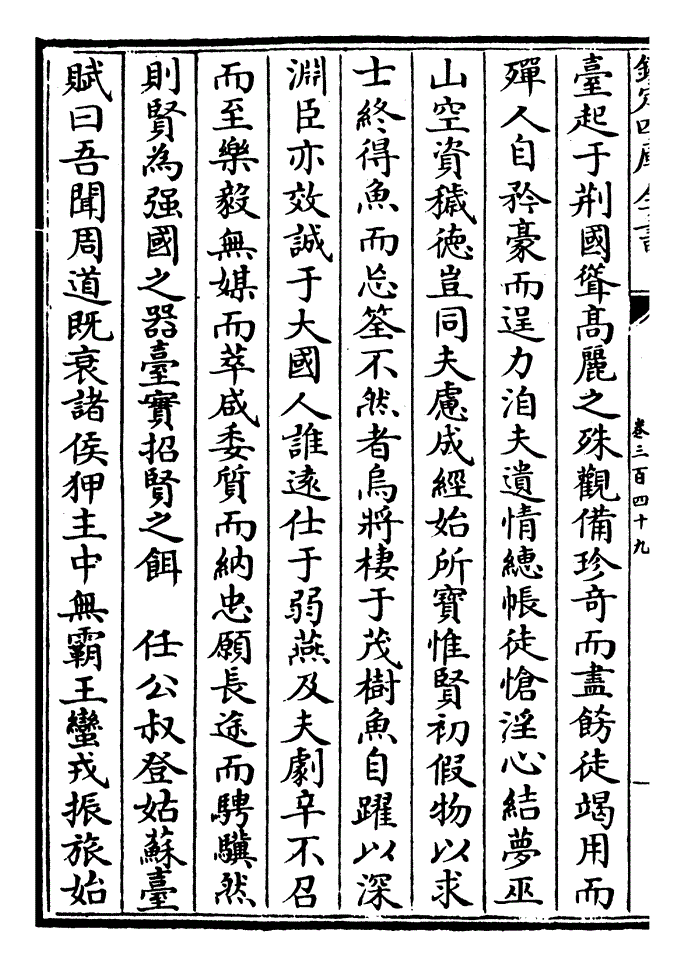 欽定四庫全書
卷三百四十九
臺起于荆國聳髙麗之殊觀備珍竒而盡餝徒竭用而
殫人自矜豪而逞力洎夫遺情繐帳徒愴淫心結夢巫
山空資穢徳豈同夫慮成經始所寳惟賢初假物以求
士終得魚而忘筌不然者烏將棲于茂樹魚自躍以深
淵臣亦效誠于大國人誰逺仕于弱燕及夫劇辛不召
而至樂毅無媒而萃咸委質而納忠願長途而騁驥然
則賢為强國之器臺實招賢之餌　任公叔登姑蘇臺
賦曰吾聞周道既衰諸侯狎主中無霸王蠻戎振旅始